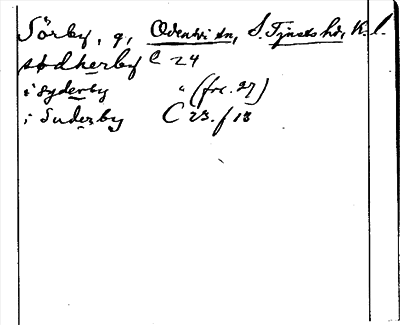 Sörby, g, Odensvi sn, S. Tjusts hd, K. l.
sødherby C 24
i syderby " (fol. 27)
i Suderby C 23. f 13